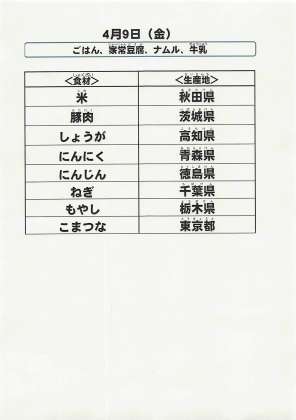 4月9日（金）
ごはん、家常豆腐、ナムル、牛乳
＜食材＞ ＜生産地＞
米 秋田県
豚肉 茨城県
しょうが 高知県
にんにく 青森県
にんじん 徳島県
ねぎ 千葉県
もやし 栃木県
こまつな 東京都